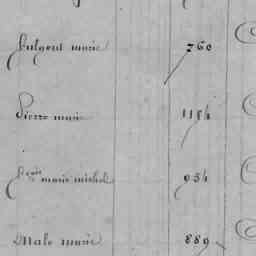 Fulgent marie 760
Pierre marie 1184
Louis marie michel 954
Malo marie 889